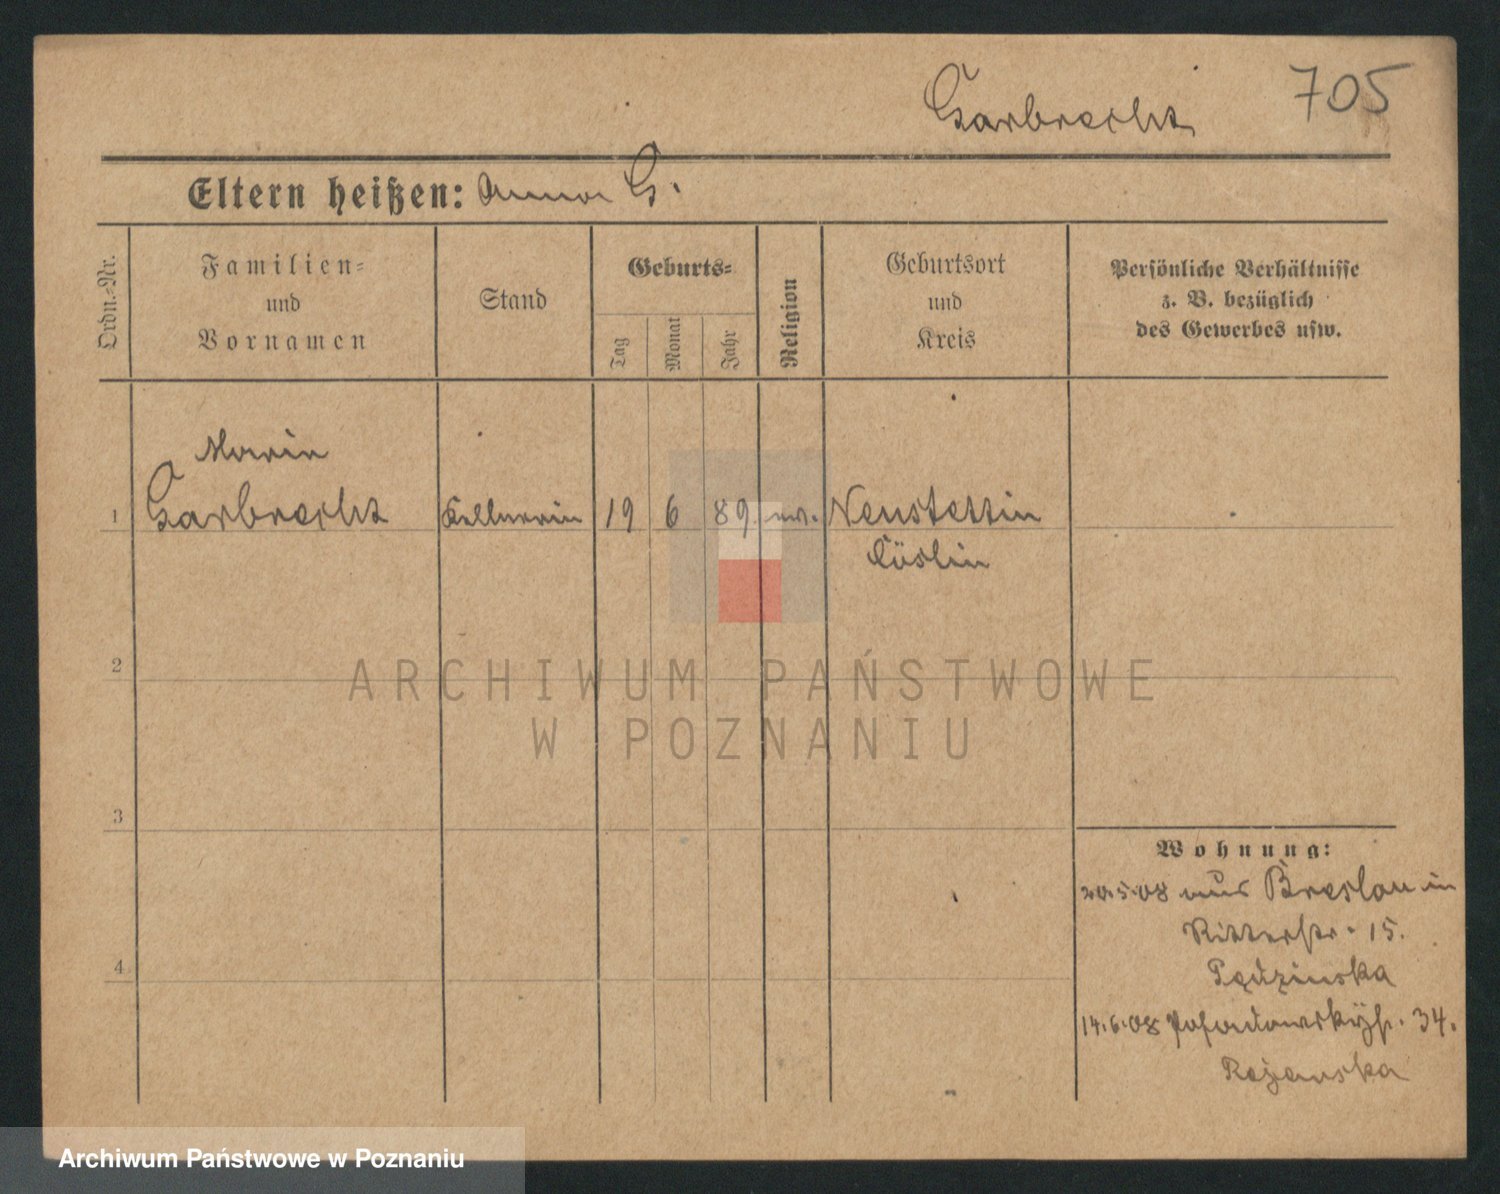 Garbrecht 705
Eltern heißen: Anna G.
Ordn.-Nr.
Familien-
und
Vornamen
Stand
Geburts-
Tag
Monat
Jahr
Religion
Geburtsort
und
Kreis
Persönliche Verhältnisse
z. B. bezüglich
des Gewerbes usw.
Marie
1 Garbrecht Kellnerin 19 6 89 ev. Neustettin
Cöslin
2
3
4
Wohnung:
20.5.08 aus Breslau in
Ritterstr. 15.
14.6.08 Posadowskystr. 34.
ARCHIWUM PAŃSTWOWE
W POZNANIU
Archiwum Państwowe w Poznaniu